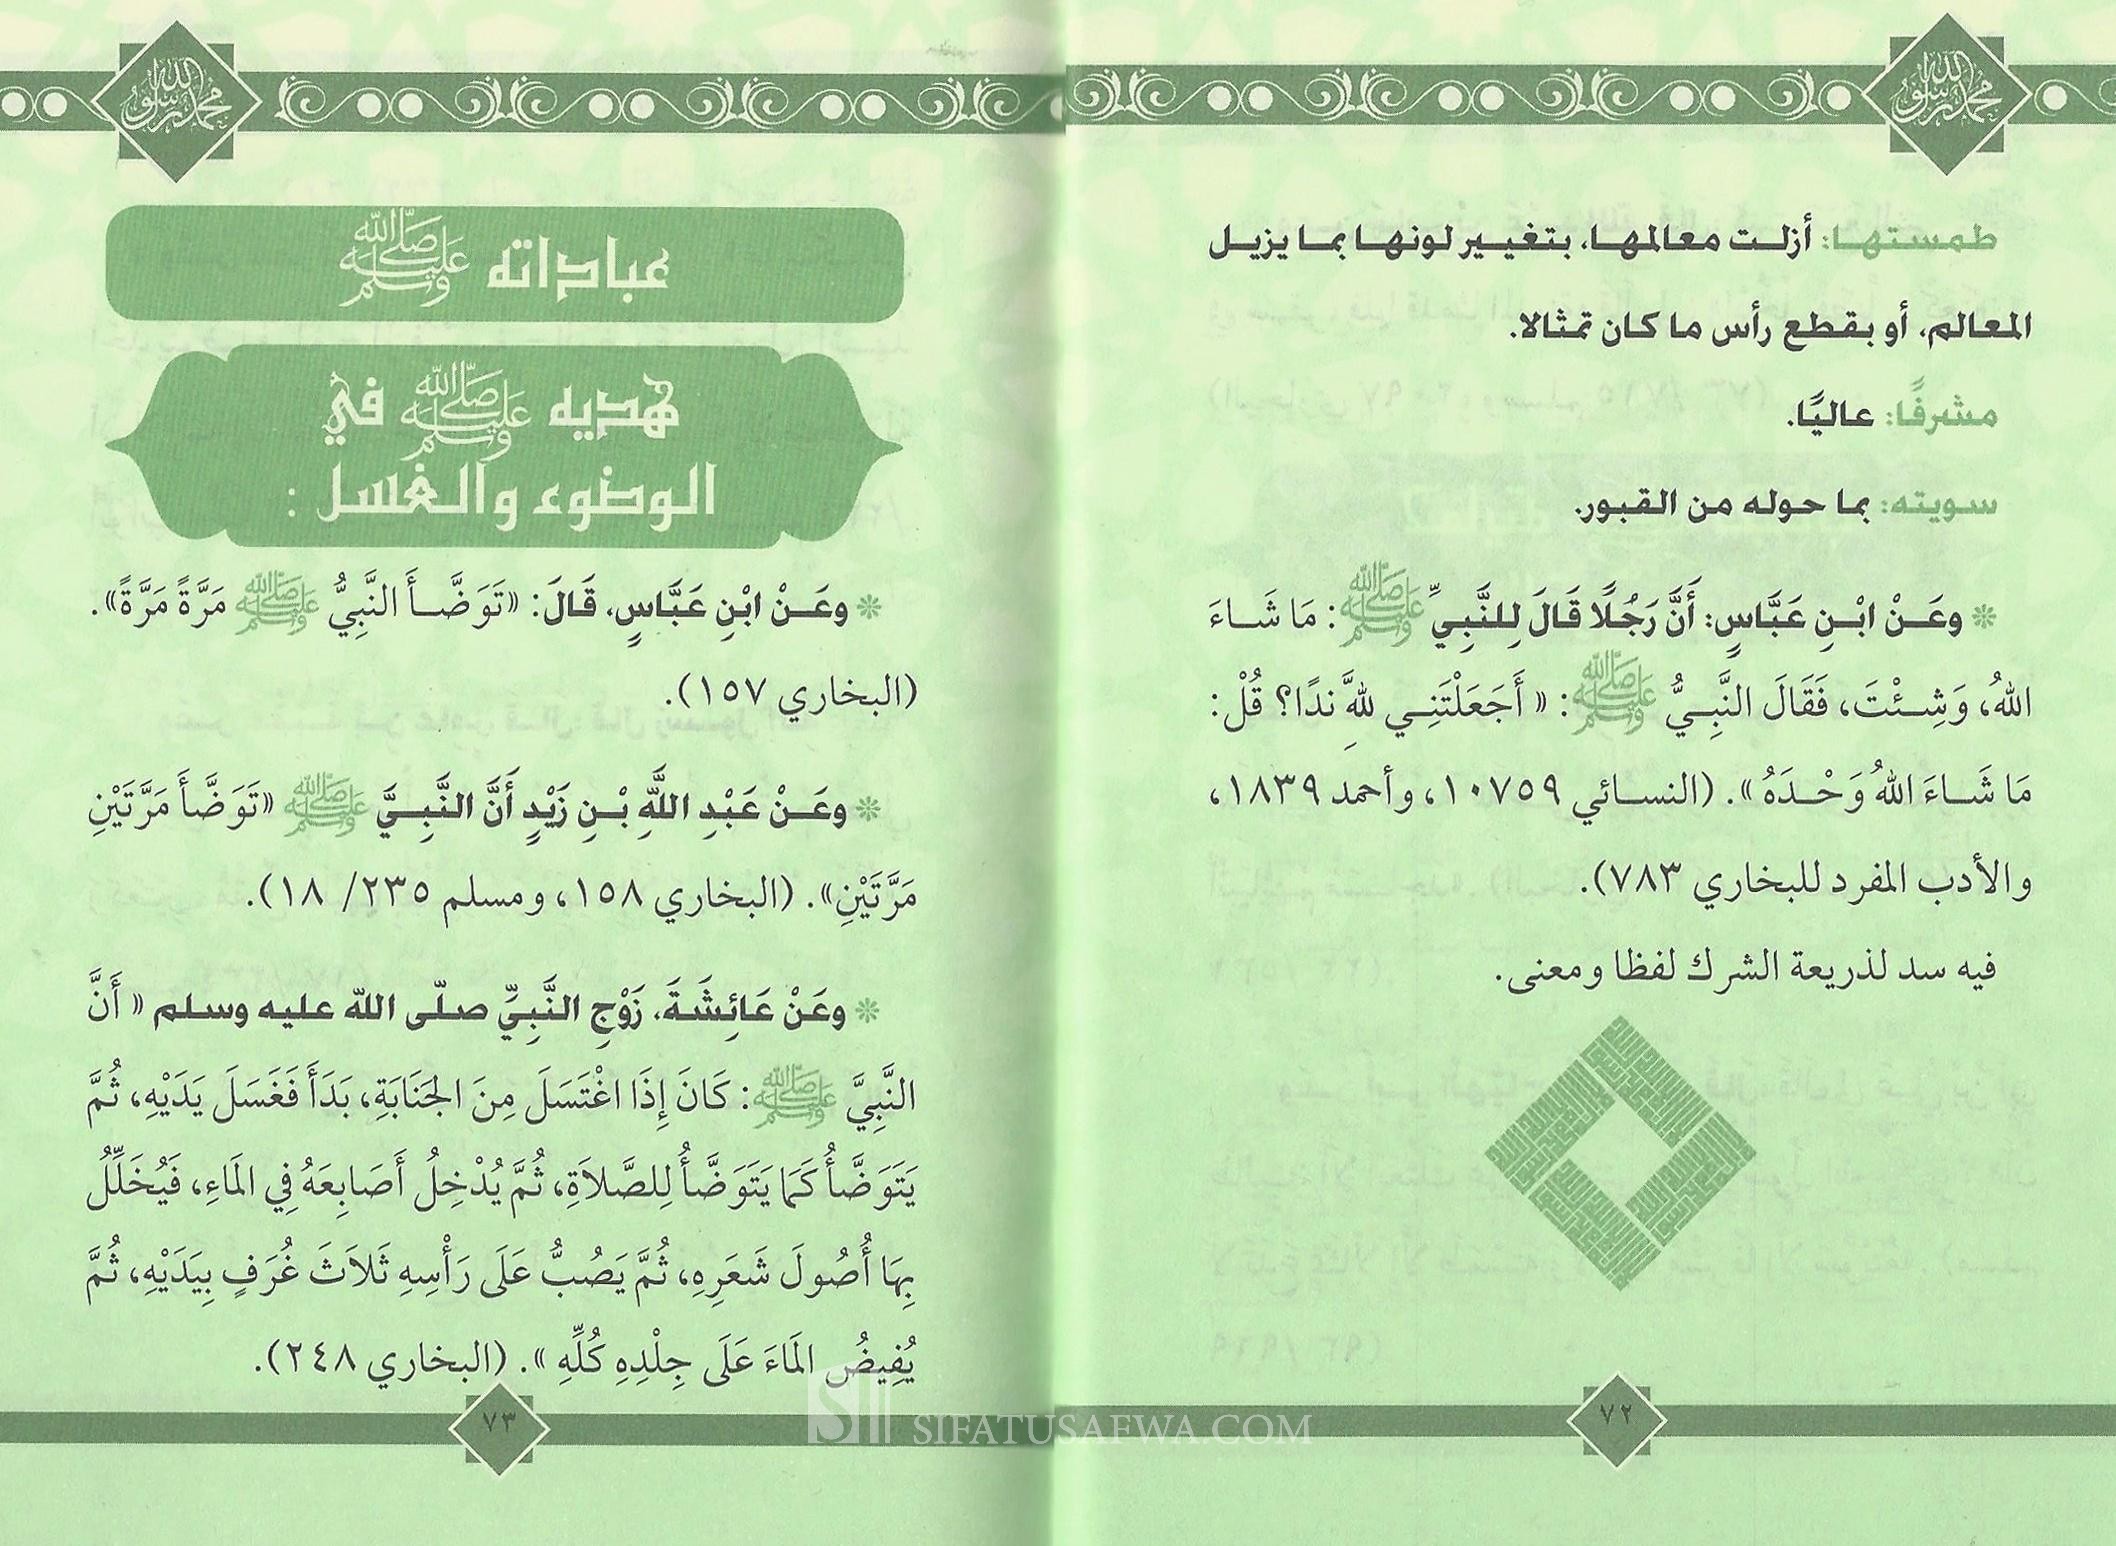 محمد رسول الله
طمستها: أزلت معالمها، بتغيير لونها بما يزيل
المعالم، أو بقطع رأس ما كان تمثالا.
مشرفًا: عاليًا.
سويته: بما حوله من القبور.
❊ وعَنْ ابْنِ عَبَّاسٍ: أَنَّ رَجُلًا قَالَ لِلنَّبِيِّ ﷺ: مَا شَاءَ
اللهُ، وَشِئْتَ، فَقَالَ النَّبِيُّ ﷺ: « أَجَعَلْتَنِي للهِ نَدًا؟ قُلْ:
مَا شَاءَ اللهُ وَحْدَهُ ». (النسائي ١٠٧٥٩، وأحمد ١٨٣٩،
والأدب المفرد للبخاري ٧٨٣).
فيه سد لذريعة الشرك لفظا ومعنى.
٧٢
محمد رسول الله
عباداته ﷺ
هديه ﷺ في
الوضوء والغسل :
❊ وعَنْ ابْنِ عَبَّاسٍ، قَالَ: «تَوَضَّأَ النَّبِيُّ ﷺ مَرَّةً مَرَّةً».
(البخاري ١٥٧).
❊ وعَنْ عَبْدِ اللَّهِ بْنِ زَيْدٍ أَنَّ النَّبِيَّ ﷺ «تَوَضَّأَ مَرَّتَيْنِ
مَرَّتَيْنِ». (البخاري ١٥٨، ومسلم ٢٣٥/ ١٨).
❊ وعَنْ عَائِشَةَ، زَوْجِ النَّبِيِّ صلّى اللّه عليه وسلم « أَنَّ
النَّبِيَّ ﷺ: كَانَ إِذَا اغْتَسَلَ مِنَ الجَنَابَةِ، بَدَأَ فَغَسَلَ يَدَيْهِ، ثُمَّ
يَتَوَضَّأُ كَمَا يَتَوَضَّأُ لِلصَّلاَةِ، ثُمَّ يُدْخِلُ أَصَابِعَهُ فِي المَاءِ، فَيُخَلِّلُ
بِهَا أُصُولَ شَعَرِهِ، ثُمَّ يَصُبُّ عَلَى رَأْسِهِ ثَلاَثَ غُرَفٍ بِيَدَيْهِ، ثُمَّ
يُفِيضُ المَاءَ عَلَى جِلْدِهِ كُلِّهِ ». (البخاري ٢٤٨).
٧٣
SIFATUSAFWA.COM